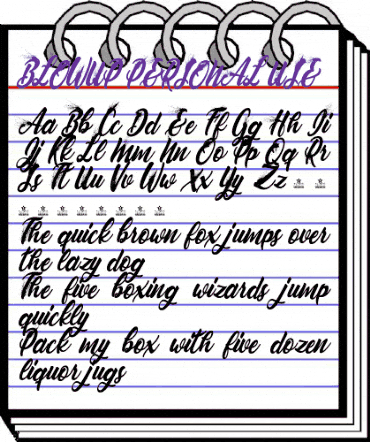 BLOWUP PERSONAL USE
Aa Bb Cc Dd Ee Ff Gg Hh Ii
Jj Kk Ll Mm Nn Oo Pp Qq Rr
Ss Tt Uu Vv Ww Xx Yy Zz
The quick brown fox jumps over
the lazy dog
The five boxing wizards jump
quickly
Pack my box with five dozen
liquor jugs